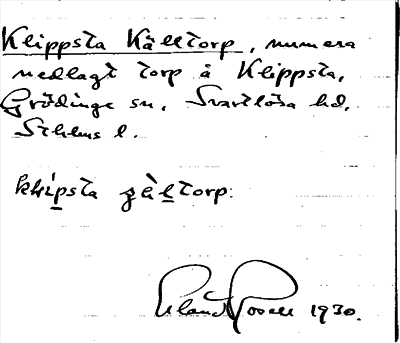 Klippsta Källtorp, numera
nedlagt torp å Klippsta,
Grödinge sn, Svartlösa hd,
Sthlms l.
klípsta gä̀ltorp.
Erland Rosell 1930.